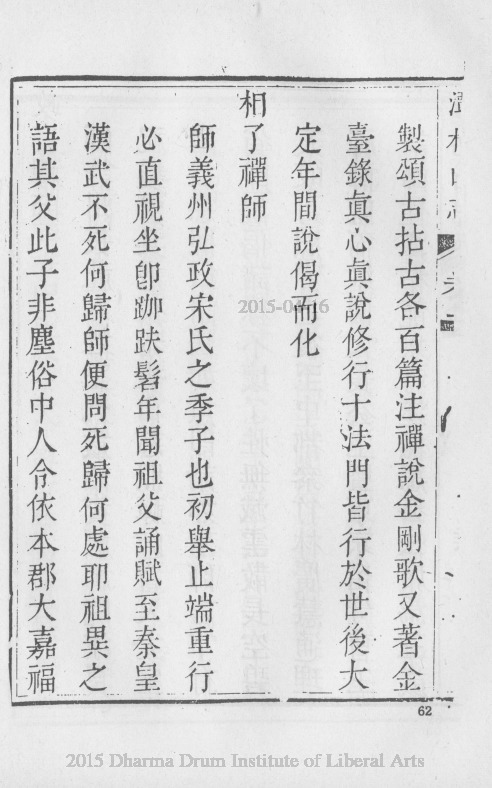 潭柘山志
製頌古拈古各百篇注禪說金剛歌又著金
臺錄眞心眞說修行十法門皆行於世後大
定年間說偈而化
相了禪師
師義州弘政宋氏之季子也初舉止端重行
必直視坐卽跏趺髫年聞祖父誦賦至秦皇
漢武不死何歸師便問死歸何處耶祖異之
語其父此子非塵俗中人令依本郡大嘉福
62
2015 Dharma Drum Institute of Liberal Arts